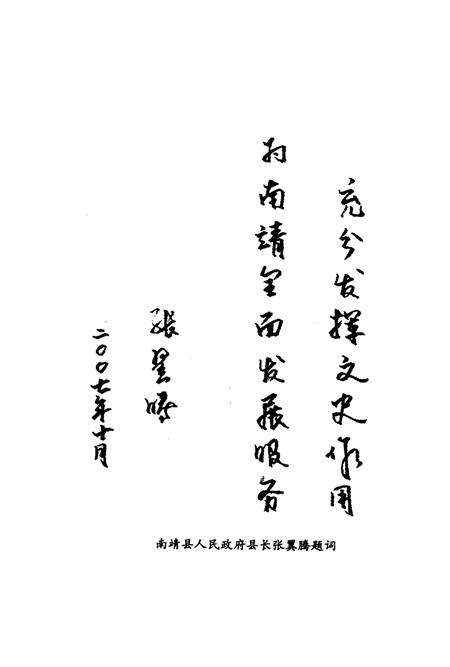 充分发挥文史作用
为南靖全面发展服务
張翼腾
二〇〇七年十月
南靖县人民政府县长张翼腾题词